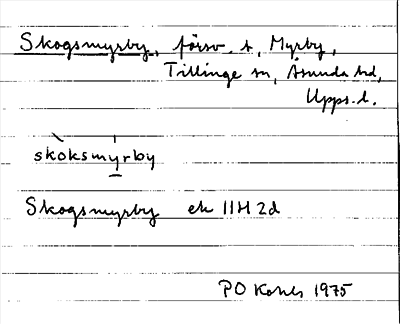 Skogsmyrby, försv. t, Myrby,
Tillinge sn, Åsunda hd,
Upps. l.
skòksmyrby
Skogsmyrby ek 11H 2d
PO 1975